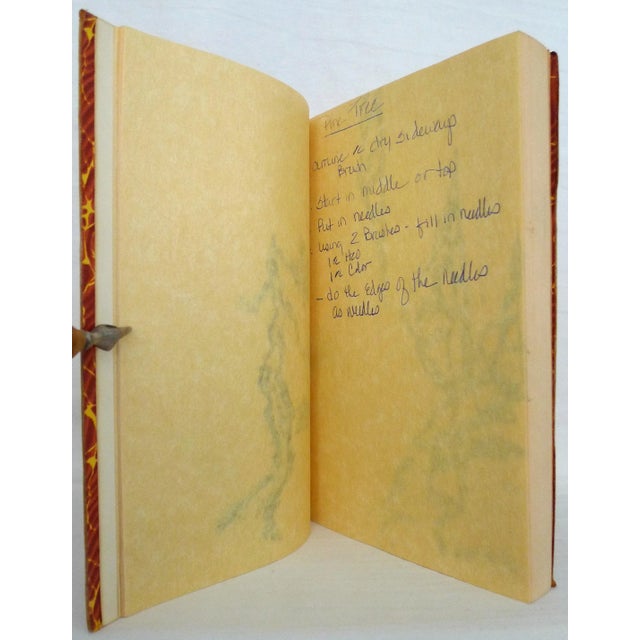 Pine Tree
outline c dry sideways
Brush
Start in middle or top
Put in needles
using 2 Brushes - fill in needles
1 c H2O
1 c Color
- do the Edges of the needles
as needles